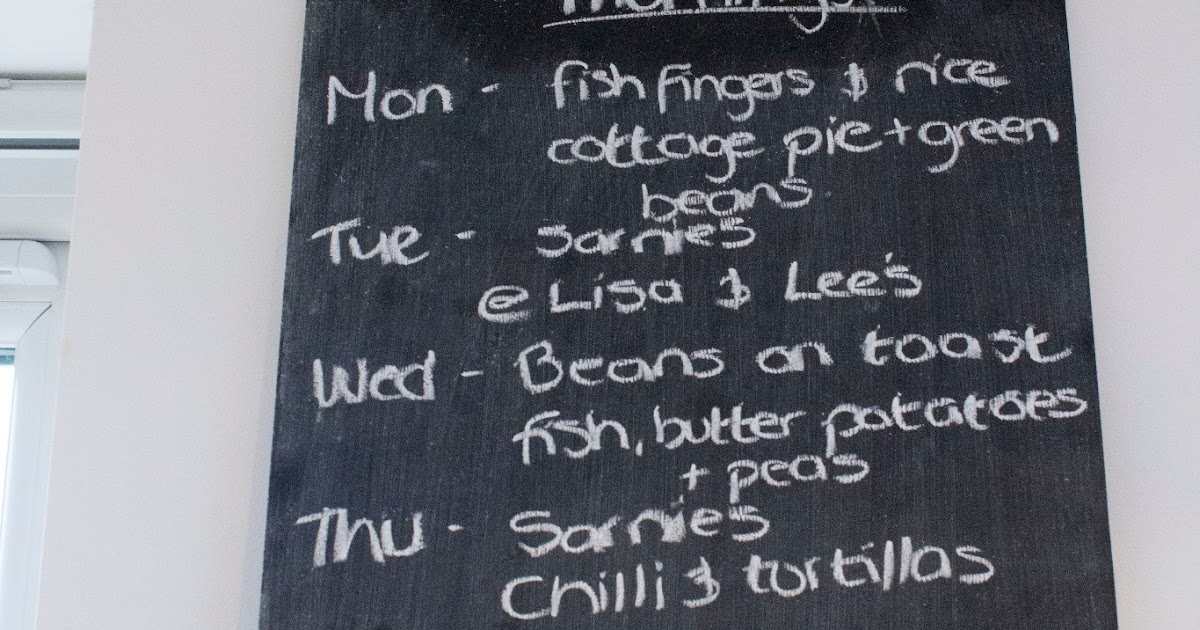 Mon - fish fingers & rice
cottage pie + green
beans
Tue - Sarnies
@ Lisa & Lee's
Wed - Beans on toast
fish, butter potatatoes
+ peas
Thu - Sarnies
Chilli & tortillas